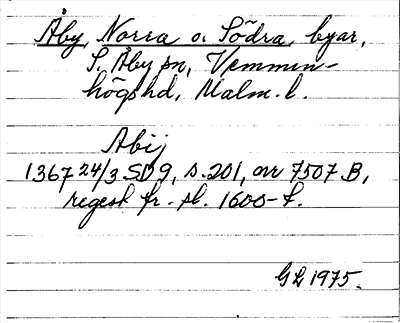 Åby, Norra o. Södra, byar,
S. Åby sn, Vemmen-
högs hd, Malm. l.
Abij
1367 24/3 SD9, s. 201, nr 7507 B,
regest fr. sl. 1600-t.
GL 1975.